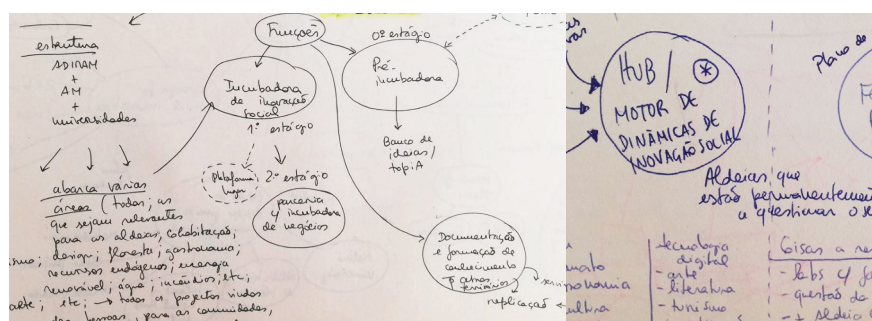 estrutura
ADIRAM
+
AM
+
universidades
abarca várias
áreas (todas; as
que sejam relevantes
para as aldeias, colabitação,
design; floresta; gastronomia;
recursos endógenos; energia
renovável; água; incêndios; etc;
arte; etc; → todos os projectos vindos
pessoas, para as comunidades,
Funções
Incubadora
de inovação
social
1º estágio
Plataforma
2º estágio
parceria
c/ incubadora
de negócios
0º estágio
Pré-
incubadora
Banco de
ideias/
top.iA
Documentação
e formação de
conhecimento
p/ outros
territórios
replicação
HUB /
MOTOR DE
DINÂMICAS DE
INOVAÇÃO SOCIAL
Plano de
Aldeias que
estão permanentemente
a questionar o
tecnologia
digital
- arte
- literatura
- turismo
Coisas a
- Labs c/
- questão da
- + Aldeia